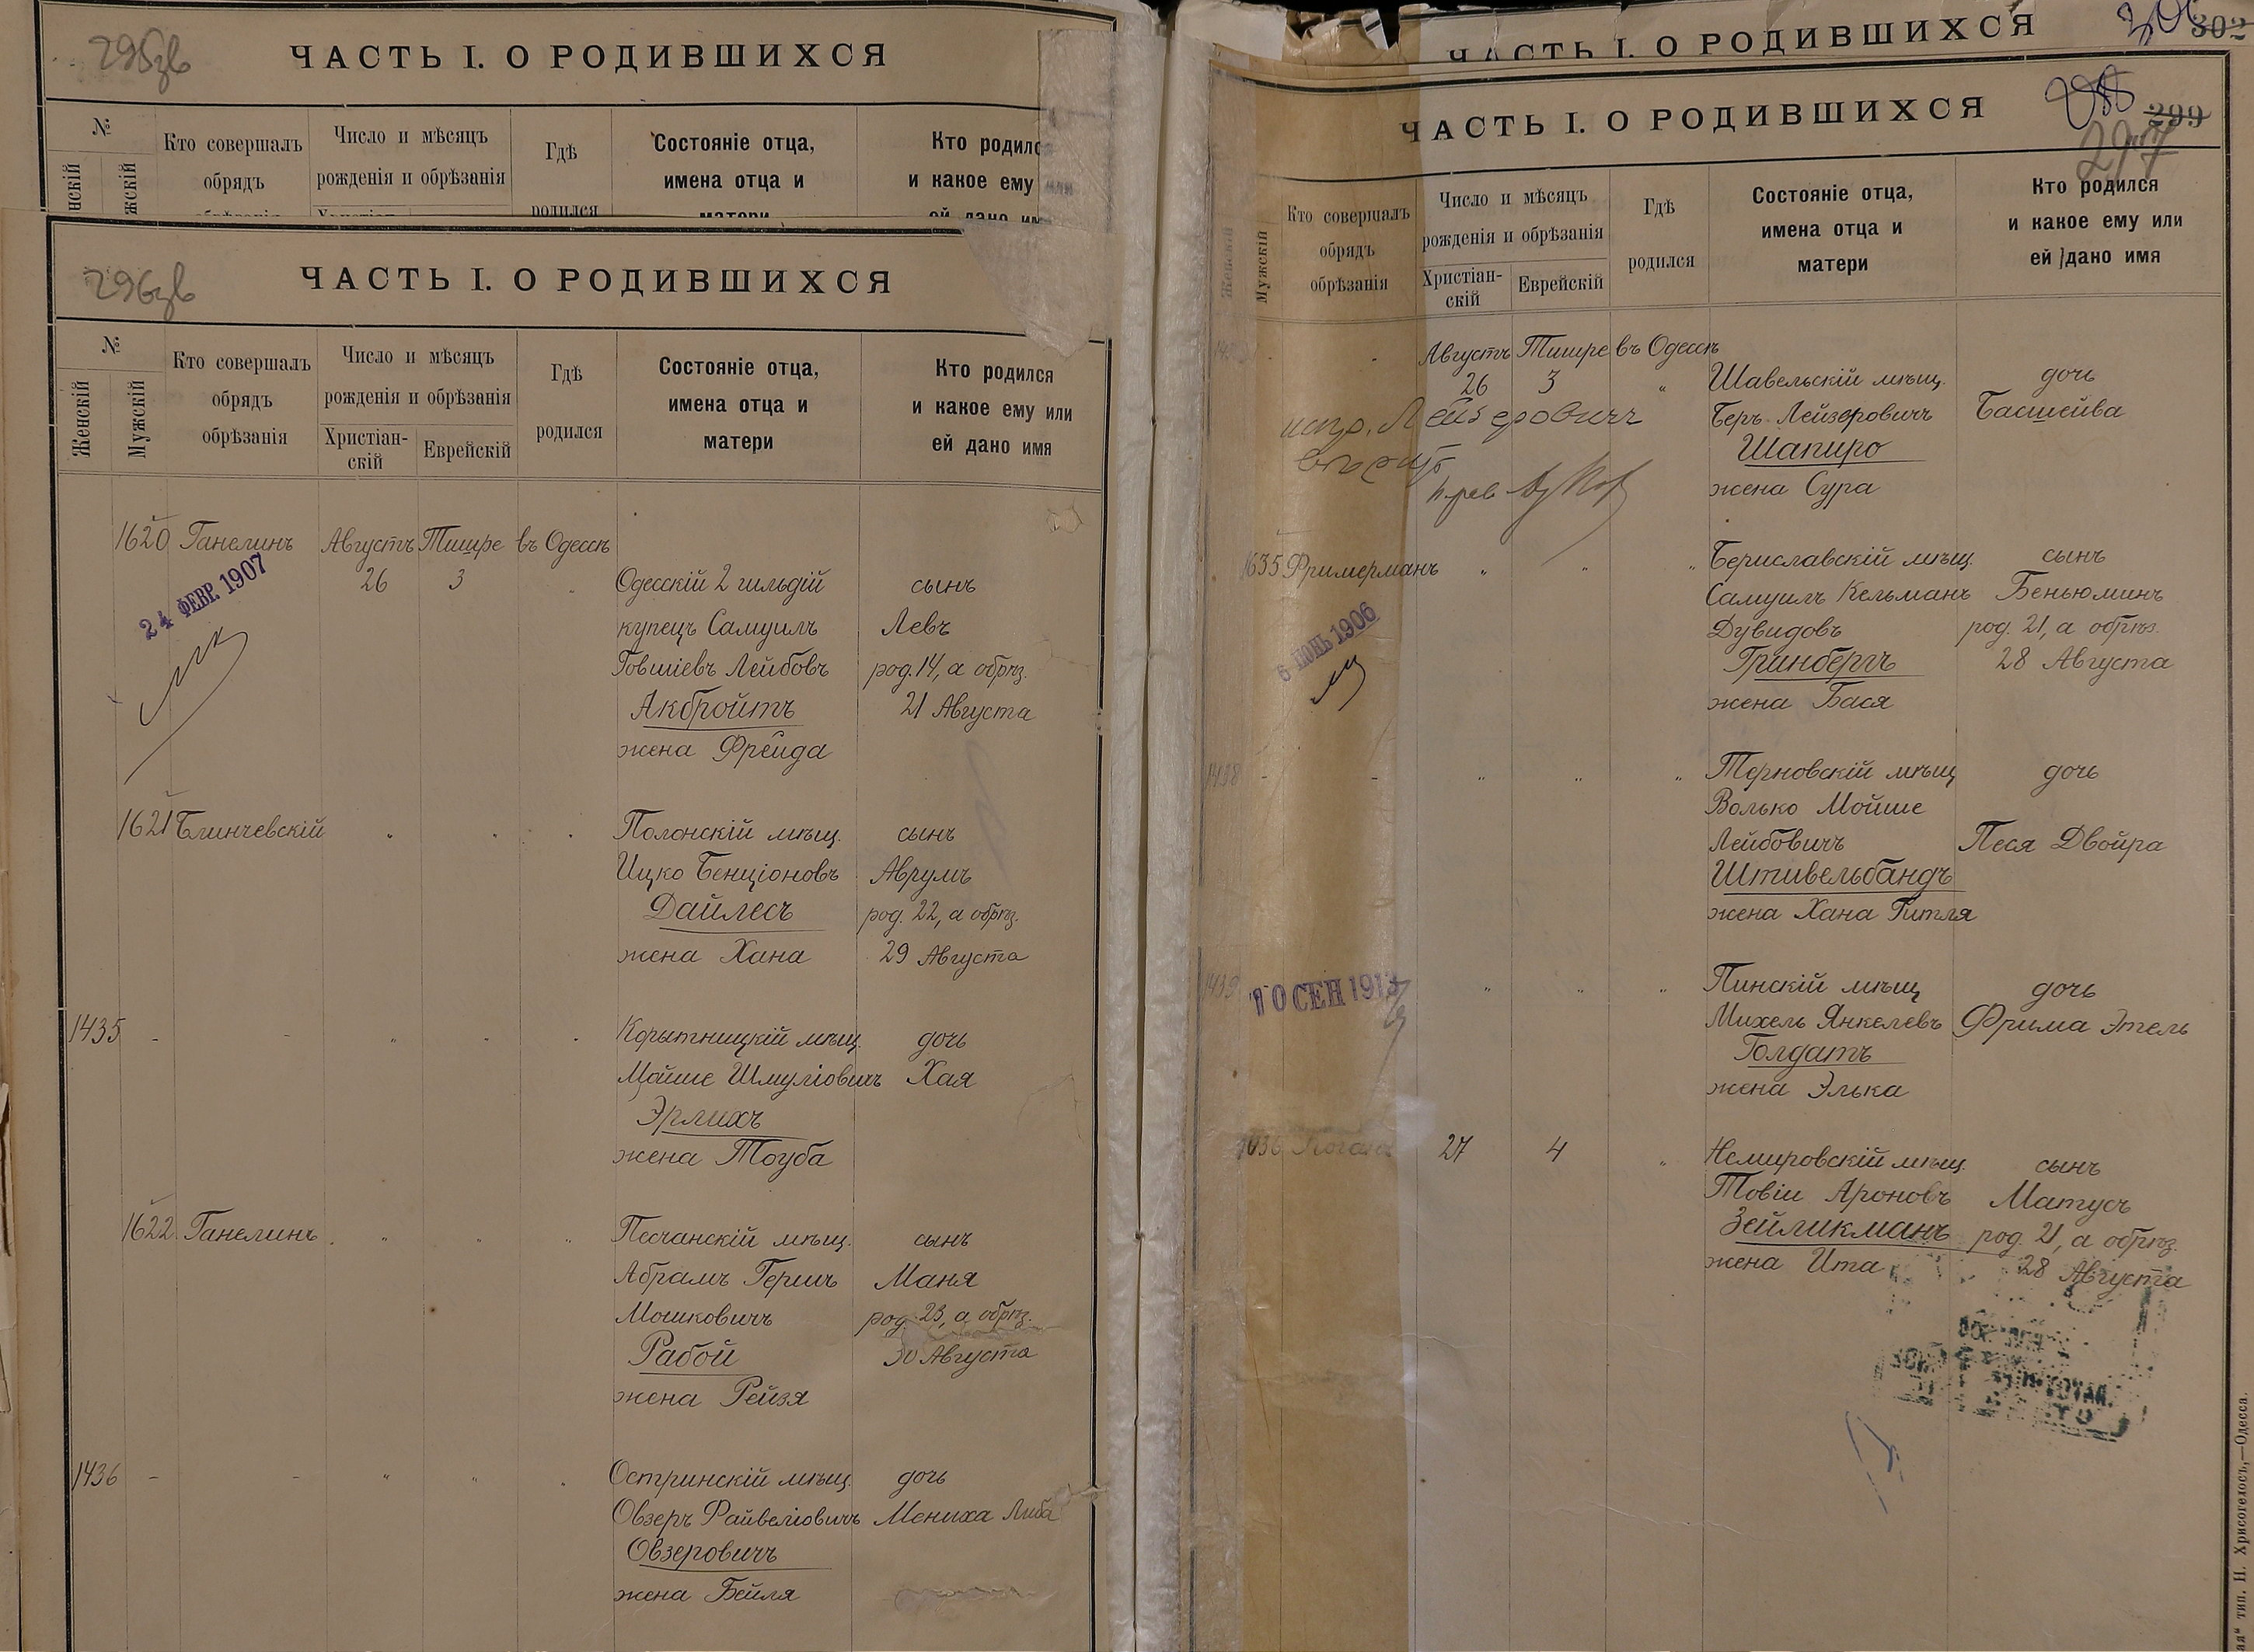 295об
ЧАСТЬ I. О РОДИВШИХСЯ
№
Кто совершалъ
обрядъ
Число и мѣсяцъ
рожденія и обрѣзанія
Гдѣ
родился
Состояніе отца,
имена отца и
матери
Кто родился
и какое ему или
ей дано им
296об
ЧАСТЬ I. О РОДИВШИХСЯ
№
Женскій
Мужскій
Кто совершалъ
обрядъ
обрѣзанія
Число и мѣсяцъ
рожденія и обрѣзанія
Христіан-
скій
Еврейскій
Гдѣ
родился
Состояніе отца,
имена отца и
матери
Кто родился
и какое ему или
ей дано имя
1620 Ганелинъ Августъ Тишре въ Одессѣ
26 3 " Одесскій 2 гильдій сынъ
24 ФЕВР. 1907
купецъ Самуилъ Левъ
Говшіевъ Лейбовъ род. 14, а обрѣз.
Акбройтъ 21 Августа
жена Фрейда
1621 Блинчевскій " " " Полонскій мѣщ. сынъ
Ицко Бенціоновъ Аврумъ
Дайлесъ род. 22, а обрѣз.
жена Хана 29 Августа
1435 - - " " " Корытницкій мѣщ. дочь
Мойше Шмуліовичъ Хая
Эрлихъ
жена Тоуба
1622 Ганелинъ " " " Песчанскій мѣщ. сынъ
Абрамъ Гершъ Маня
Мошковичъ род. 23, а обрѣз.
Рабой 30 Августа
жена Рейзя
1436 - - " " " Остринскій мѣщ. дочь
Овзеръ Файвеліовичъ Мениха Либа
Овзеровичъ
жена Бейля
ЧАСТЬ I. О РОДИВШИХСЯ
302
ЧАСТЬ I. О РОДИВШИХСЯ
299
297
Женскій
Мужскій
Кто совершалъ
обрядъ
обрѣзанія
Число и мѣсяцъ
рожденія и обрѣзанія
Христіан-
скій
Еврейскій
Гдѣ
родился
Состояніе отца,
имена отца и
матери
Кто родился
и какое ему или
ей дано имя
- Августъ Тишре въ Одессѣ
26 3 " Шавельскій мѣщ. дочь
испр. Лейзеровичъ Беръ Лейзеровичъ Басшейва
вѣрить
Шапиро
жена Сура
1635 Фримерманъ " " " Бериславскій мѣщ. сынъ
Самуилъ Кельманъ Беньюминъ
6 ІЮНЬ 1906
Дувидовъ род. 21, а обрѣз.
Гринбергъ 28 Августа
жена Бася
1438 - - " " " Терновскій мѣщ дочь
Волько Мойше
Лейбовичъ Песя Двойра
Штивельбандъ
жена Хана Гитля
1439 10 СЕН 1913 " " " Пинскій мѣщ дочь
Михель Янкелевъ Фрима Этель
Голдатъ
жена Элька
1636 Коганъ 27 4 " Немировскій мѣщ. сынъ
Товій Ароновъ Матусъ
Зейликманъ род. 21, а обрѣз.
жена Ита 28 Августа
тип. Н. Хрисогелосъ,—Одесса.